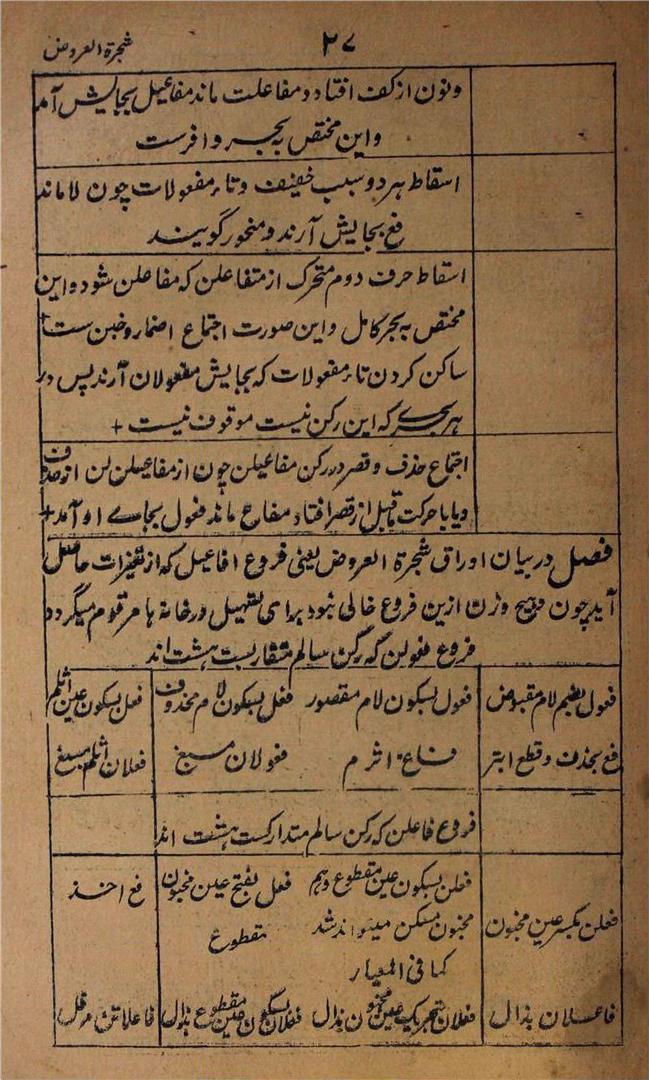 ٢٧
شجرة العروض
ونون از کف افتاد و مفاعلت ماند مفاعیل بجایش آمد
و این مختص به بحر وافرست
اسقاط هر دو سبب خفیف و تاء مفعولات چون لا ماند
فع بجایش آرند و منحور گویند
اسقاط حرف دوم متحرک از متفاعلن که مفاعلن شود و این
مختص به بحر کامل و این صورت اجتماع اضمار و خبن ست +
ساکن کردن تاء مفعولات که بجایش مفعولان آرند پس در
هر بحرے که این رکن نیست موقوف نیست +
اجتماع حذف و قصر در رکن مفاعیلن چون از مفاعیلن لن از حذف
و یا با حرکت ماقبل از قصر افتاد مفاع ماند فعول بجاے او آمد +
فصل در بیان اوراق شجرة العروض یعنی فروع افاعیل که از تغیرات حاصل
آید چون هیچ وزن ازین فروع خالی نبود برای تسهیل در خانه ها مرقوم میگردد
فروع فعولن که رکن سالم متقاربست هشت اند
فعول بضم لام مقبوض فعول بسکون لام مقصور فعل بسکون لام محذوف فعلن بسکون عین اثلم
فع بحذف و قطع ابتر فاع اثرم فعولان مسبغ فعلان اثلم مسبغ
فروع فاعلن که رکن سالم متدارکست هشت اند
فعلن بکسر عین مخبون فعلن بسکون عین مقطوع و هم مخبون مسکن میتواند شد کما فی المعیار فعل بفتح عین مخبون مقطوع فع احذ
فاعلان مذال فعلان بتحریک عین مخبون مذال فعلان بسکون عین مقطوع مذال فاعلاتن مرفل